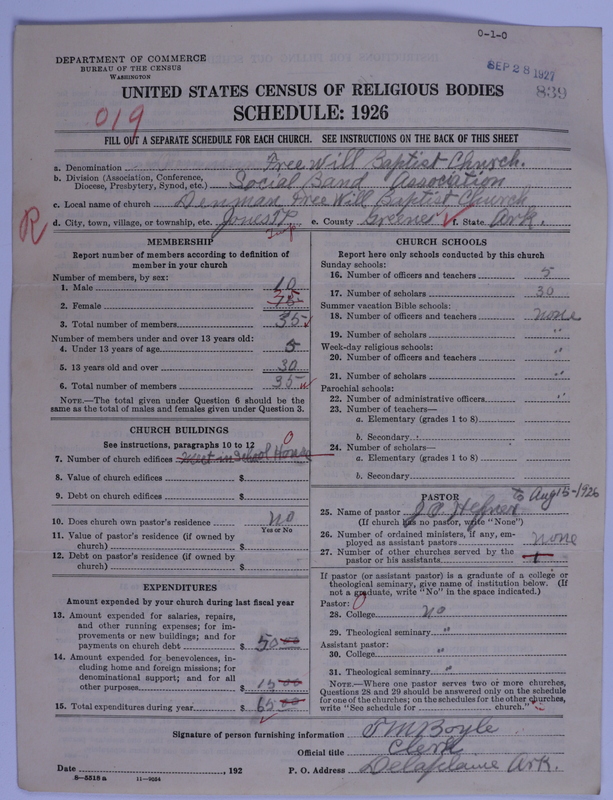 0-1-0
DEPARTMENT OF COMMERCE
BUREAU OF THE CENSUS
WASHINGTON
SEP 28 1927
839
UNITED STATES CENSUS OF RELIGIOUS BODIES
019
SCHEDULE: 1926
FILL OUT A SEPARATE SCHEDULE FOR EACH CHURCH. SEE INSTRUCTIONS ON THE BACK OF THIS SHEET
a. Denomination Free Will Baptist Church.
b. Division (Association, Conference, Diocese, Presbytery, Synod, etc.) Social Band Association
c. Local name of church Denman Free Will Baptist Church
R
d. City, town, village, or township, etc. Jones Tp e. County Greene f. State Ark.
MEMBERSHIP
Report number of members according to definition of
member in your church
Number of members, by sex:
1. Male 10
2. Female 25
3. Total number of members 35
Number of members under and over 13 years old:
4. Under 13 years of age 5
5. 13 years old and over 30
6. Total number of members 35
NOTE.—The total given under Question 6 should be
same as the total of males and females given under Question 3.
CHURCH BUILDINGS
See instructions, paragraphs 10 to 12
0
7. Number of church edifices Meet in School House
8. Value of church edifices $
9. Debt on church edifices $
10. Does church own pastor's residence no
Yes or No
11. Value of pastor's residence (if owned by
church) $
12. Debt on pastor's residence (if owned by
church) $
EXPENDITURES
Amount expended by your church during last fiscal year
13. Amount expended for salaries, repairs,
and other running expenses; for im-
provements or new buildings; and for
payments on church debt $ 50 00
14. Amount expended for benevolences, in-
cluding home and foreign missions; for
denominational support; and for all
other purposes $ 15 00
15. Total expenditures during year $ 65 00
CHURCH SCHOOLS
Report here only schools conducted by this church
Sunday schools:
16. Number of officers and teachers 5
17. Number of scholars 30
Summer vacation Bible schools:
18. Number of officers and teachers none
19. Number of scholars "
Week-day religious schools:
20. Number of officers and teachers "
21. Number of scholars "
Parochial schools:
22. Number of administrative officers "
23. Number of teachers—
a. Elementary (grades 1 to 8)
b. Secondary
24. Number of scholars—
a. Elementary (grades 1 to 8)
b. Secondary
PASTOR
to Aug 15-1926
25. Name of pastor J. P. Hefner
(If church has no pastor, write "None")
26. Number of ordained ministers, if any, em-
ployed as assistant pastors none
27. Number of other churches served by the
pastor or his assistants 1
If pastor (or assistant pastor) is a graduate of a college or
theological seminary, give name of institution below. (If
not a graduate, write "No" in the space indicated.)
Pastor: 0
28. College no
29. Theological seminary "
Assistant pastor:
30. College "
31. Theological seminary "
NOTE.—Where one pastor serves two or more churches,
Questions 28 and 29 should be answered only on the schedule
for one of the churches; on the schedules for the other churches,
write "See schedule for church."
Signature of person furnishing information J M Boyle
Official title Clerk
Date , 192 P. O. Address Delaplaine Ark.
8-5518 a 11-9024